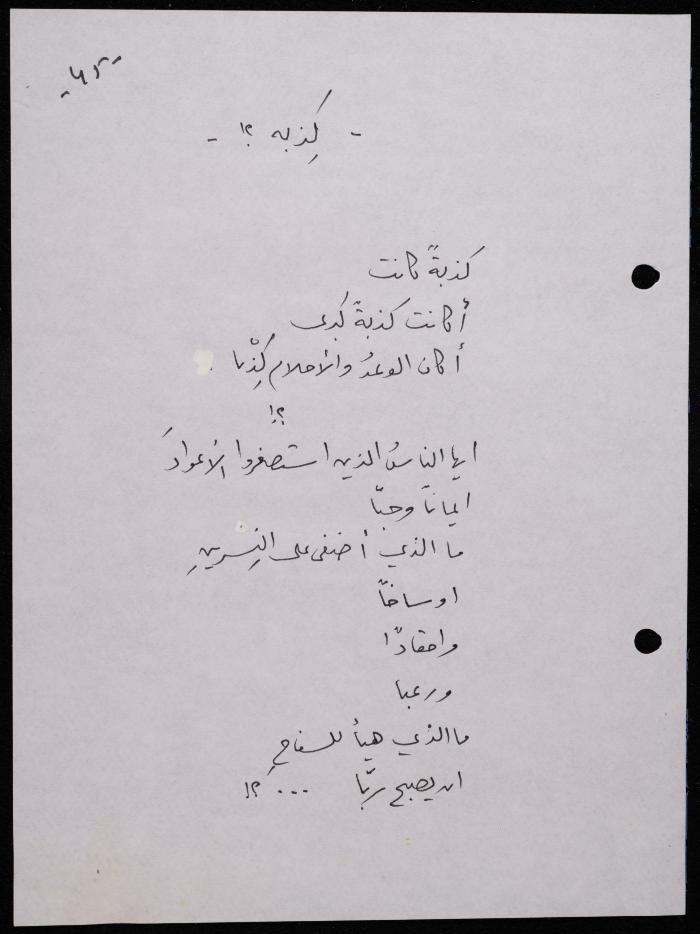 -٦٢-
- كِذبه ؟! -
كذبةً كانت
أكانت كذبةً كبرى
أكان الوعدُ والأحلام كِذْبا .
؟!
ايها الناسُ الذين استصغروا الأعوادَ
ايماناً وحبّا
ما الذي أضفى على النِسرينِ
اوساخاً
واحقادًا
ورعبا
ما الذي هيأ للسفاحِ
ان يصبح ربّا ... ؟!